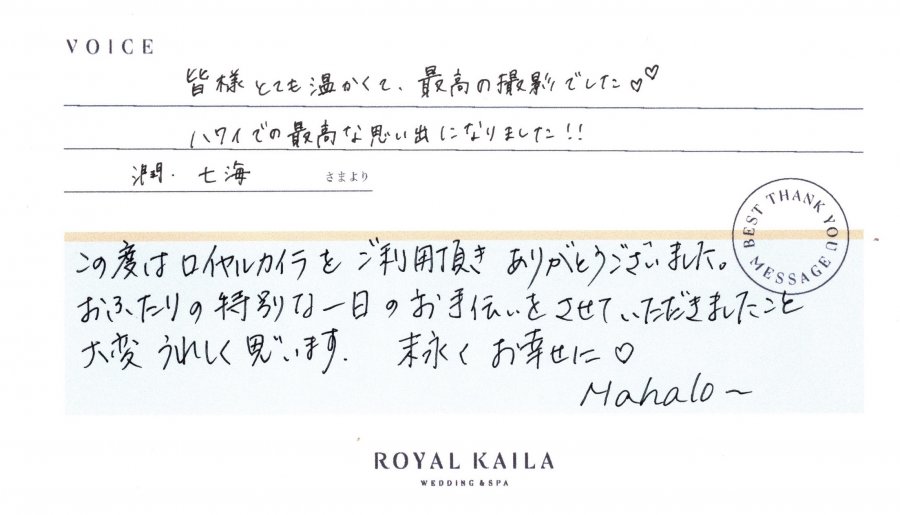 VOICE
皆様とても温かくて、最高の撮影でした♡♡
ハワイでの最高な思い出になりました!!
潤・七海 さまより
BEST THANK YOU MESSAGE
この度はロイヤルカイラをご利用頂きありがとうございました。
おふたりの特別な一日のお手伝いをさせていただきましたこと
大変うれしく思います. 末永くお幸せに♡
Mahalo~
ROYAL KAILA
WEDDING & SPA